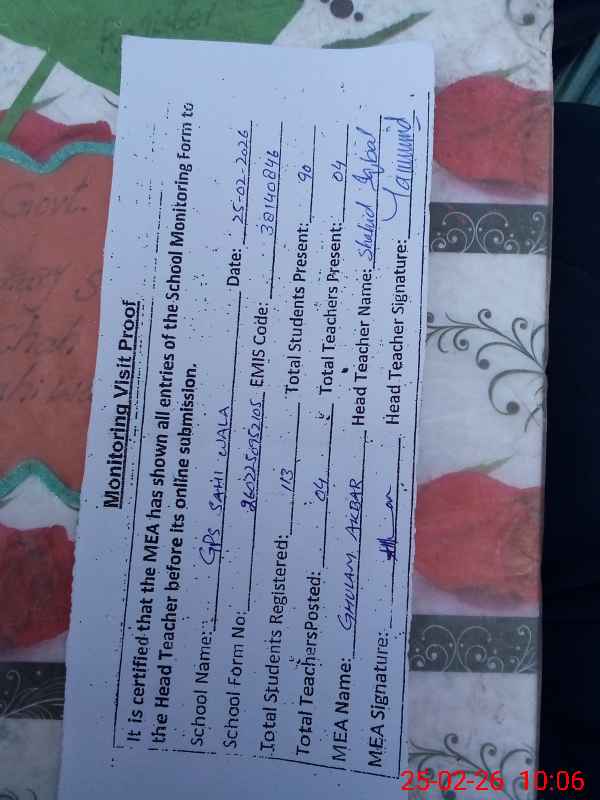 Monitoring Visit Proof
It is certified that the MEA has shown all entries of the School Monitoring Form to
the Head Teacher before its online submission.
School Name: GPS SAHI WALA Date: 25-02-2026
School Form No: EMIS Code: 38140846
Total Students Registered: 113 Total Students Present: 90
Total TeachersPosted: 04 Total Teachers Present: 04
MEA Name: GHULAM AKBAR Head Teacher Name: Shahid Iqbal
MEA Signature: Head Teacher Signature:
Govt.
25-02-26 10:06